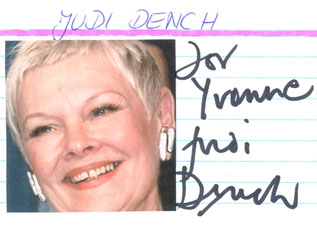 JUDI DENCH
for
Yvonne
Judi
Dench